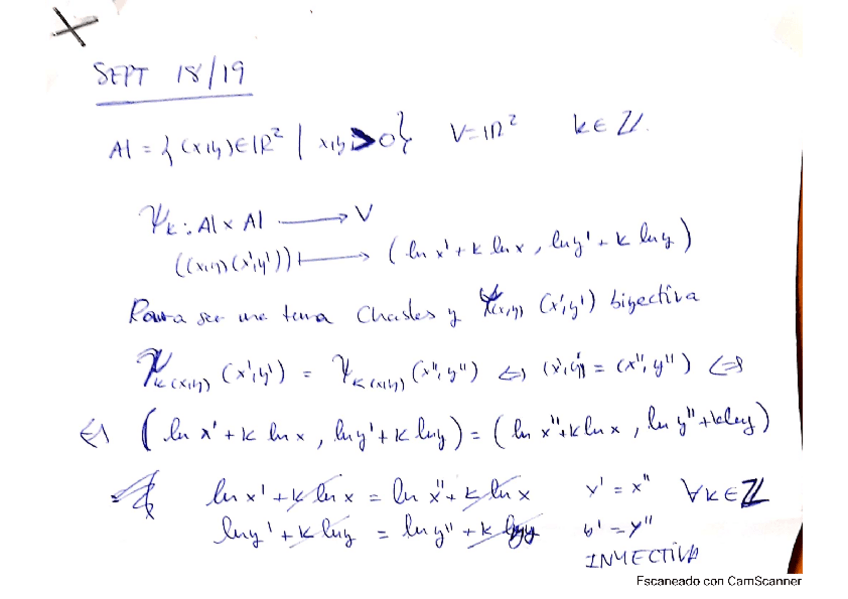 SEPT 18/19
A = { (x,y) ∈ ℝ² | x,y > 0 } V = ℝ² k ∈ ℤ.
Ψk : A × A ⟶ V
((x,y) (x',y')) ⟼ ( ln x' + k ln x , ln y' + k ln y )
Para ser una terna Chasles y Ψk(x,y) (x',y') biyectiva
Ψk(x,y) (x',y') = Ψk(x,y) (x'',y'') ⇔ (x',y') = (x'',y'') ⇔
⇔ ( ln x' + k ln x , ln y' + k ln y ) = ( ln x'' + k ln x , ln y'' + k ln y )
ln x' + k ln x = ln x'' + k ln x x' = x'' ∀k ∈ ℤ
ln y' + k ln y = ln y'' + k ln y y' = y''
INYECTIVA
Escaneado con CamScanner